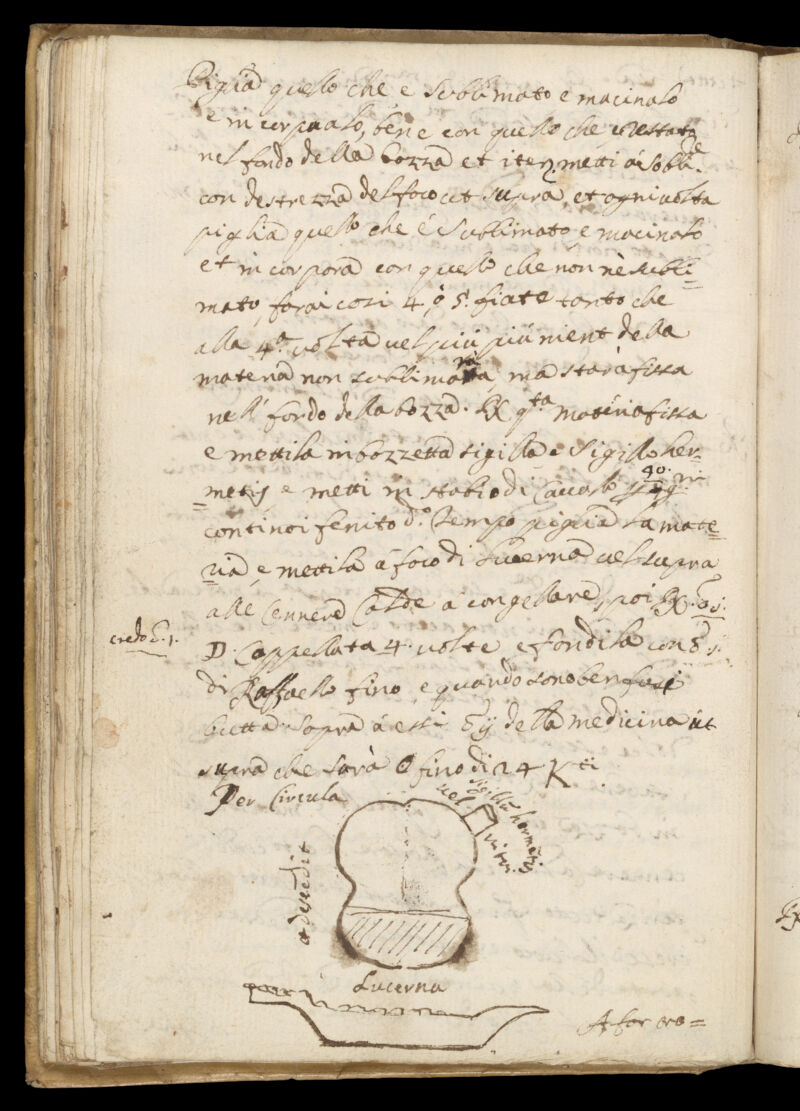 Piglia quello che e sublimato e macinalo
e incorporalo, bene con quello che e restato
nel fondo della bozza et iter. metti à sobli.re
con destrezza del foco ut supra, et ogni volta
piglia quello che é sublimato, e macinalo
et incorpora con quello che non nè subli=
mato, farai cosi 4 ó 5 fiate tanto che
alla 4.a volta vel più più nient della
materia non sublimarà, ma starà fissa
nell' fondo della bozza. q.ta materia fissa
e mettila in bozzetta sigilla Sigillo her=
=metis e metti in stabio di Cavallo 40
continoi fenito d.o tempo piglia la mate=
ria, e mettila á foco di lucerna vel supra
alle Cennere Calde a congellare, poi
credo 1.
D. Cappellata 4. volte e fondila con
di fino, e quando sono ben fusi
butta sopra á essi della medicina ut
supra che sarà fino di 24 K.ti
Per Circula
vel sigillū hermetis
vitri
Lucerna
A far oro=